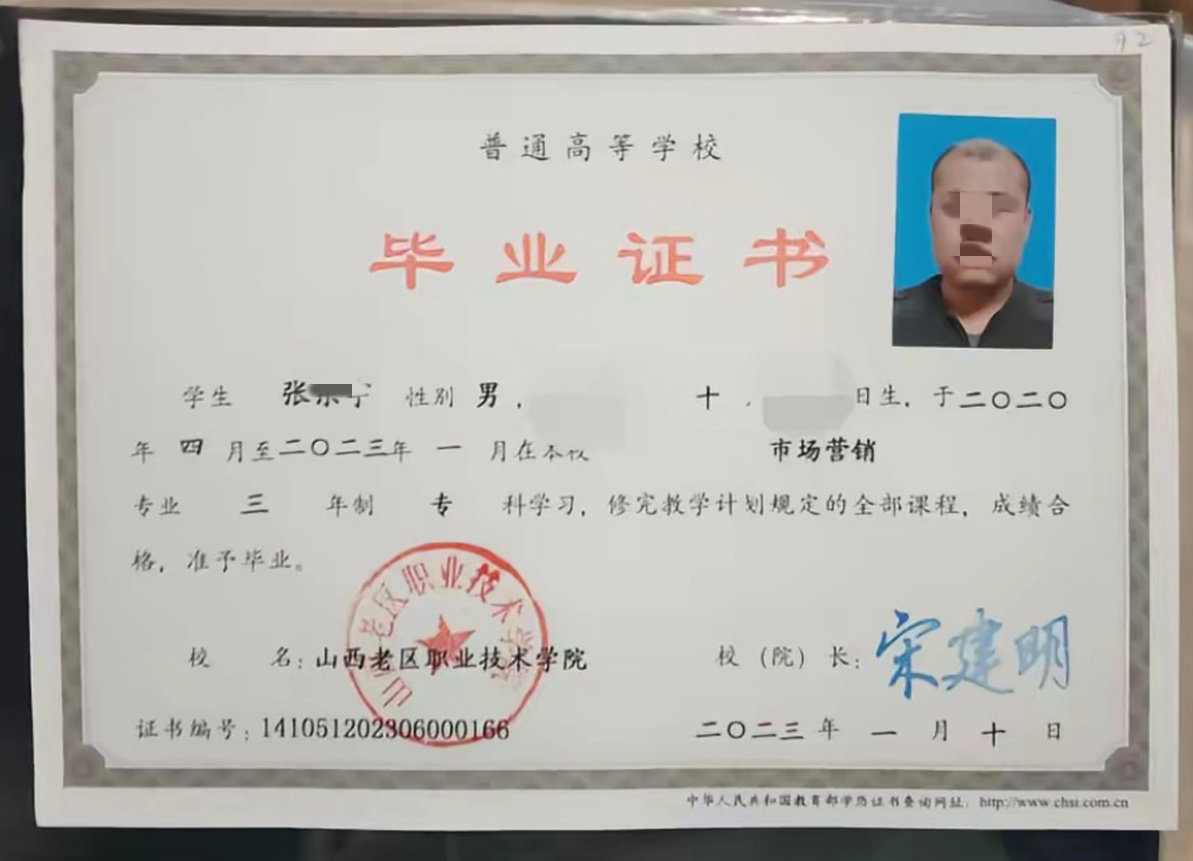 92
普通高等学校
毕业证书
学生 张 宁 性别 男， 十 日生，于二〇二〇
年 四 月至二〇二三年 一 月在本校 市场营销
专业 三 年制 专 科学习，修完教学计划规定的全部课程，成绩合
格，准予毕业。
山西老区职业技术学院
校 名：山西老区职业技术学院
校（院）长：宋建明
证书编号：141051202306000166
二〇二三 年 一 月 十 日
中华人民共和国教育部学历证书查询网址：http://www.chsi.com.cn